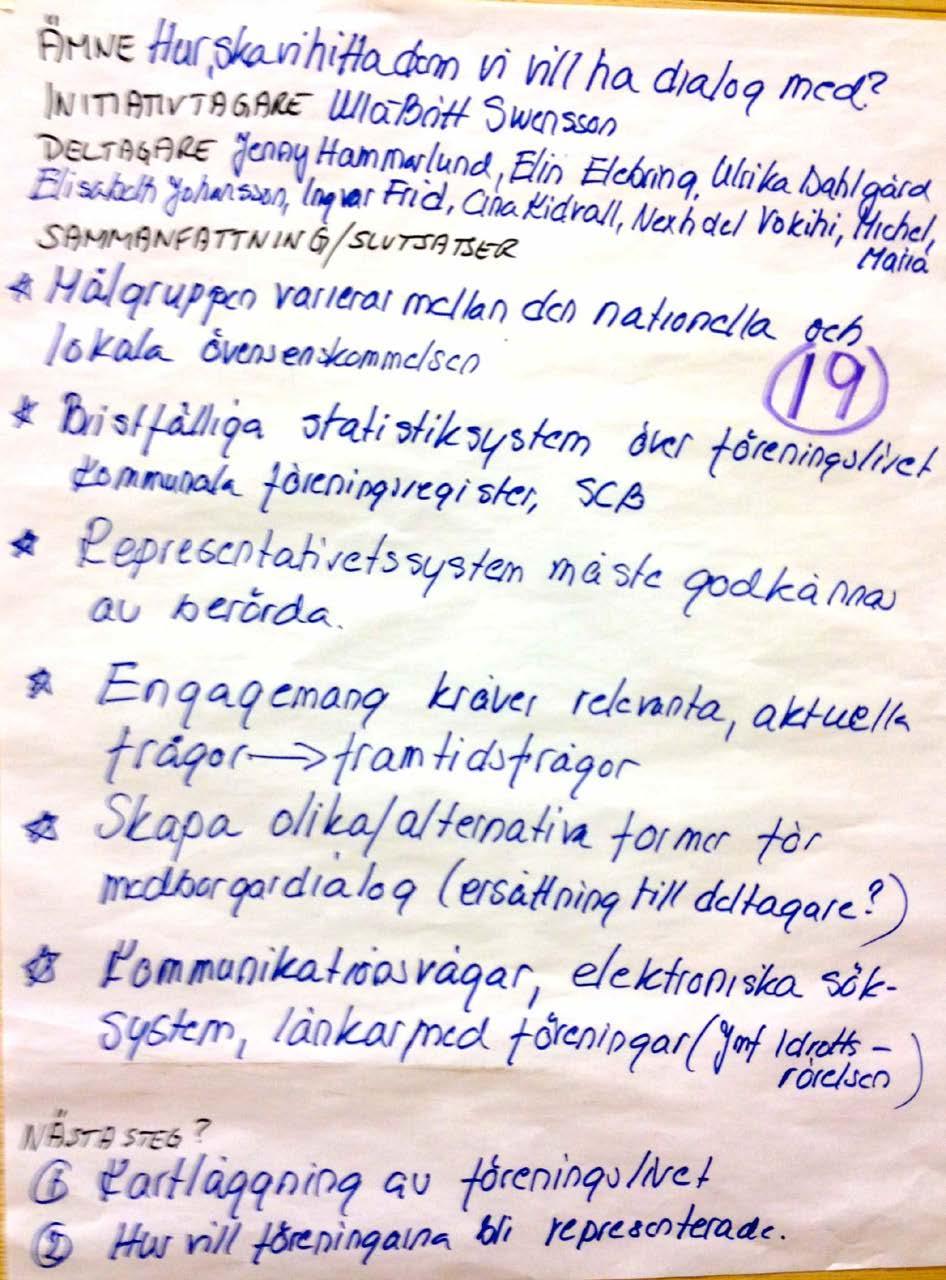 ÄMNE Hur ska vi hitta dem vi vill ha dialog med?
INITIATIVTAGARE Ulla-Britt Swensson
DELTAGARE Jenny Hammarlund, Elin Elebring, Ulrika Dahlgård
Elisabeth Johansson, Ingvar Frid, Cina Kidvall, Nexhdel Vokihi, Michel,
Maria
SAMMANFATTNING/SLUTSATSER
* Målgruppen varierar mellan den nationella och
lokala övensenskommelsen
19
* Bristfälliga statistiksystem över föreningslivet
Kommunala föreningsregister, SCB
* Representativetssystem måste godkännas
av berörda.
* Engagemang kräver relevanta, aktuella
frågor → framtidsfrågor
* Skapa olika/alternativa former för
medborgardialog (ersättning till deltagare?)
* Kommunikationsvägar, elektroniska sök-
system, länkar med föreningar (Jmf Idrotts-
rörelsen)
NÄSTA STEG?
① Kartläggning av föreningslivet
② Hur vill föreningarna bli representerade.